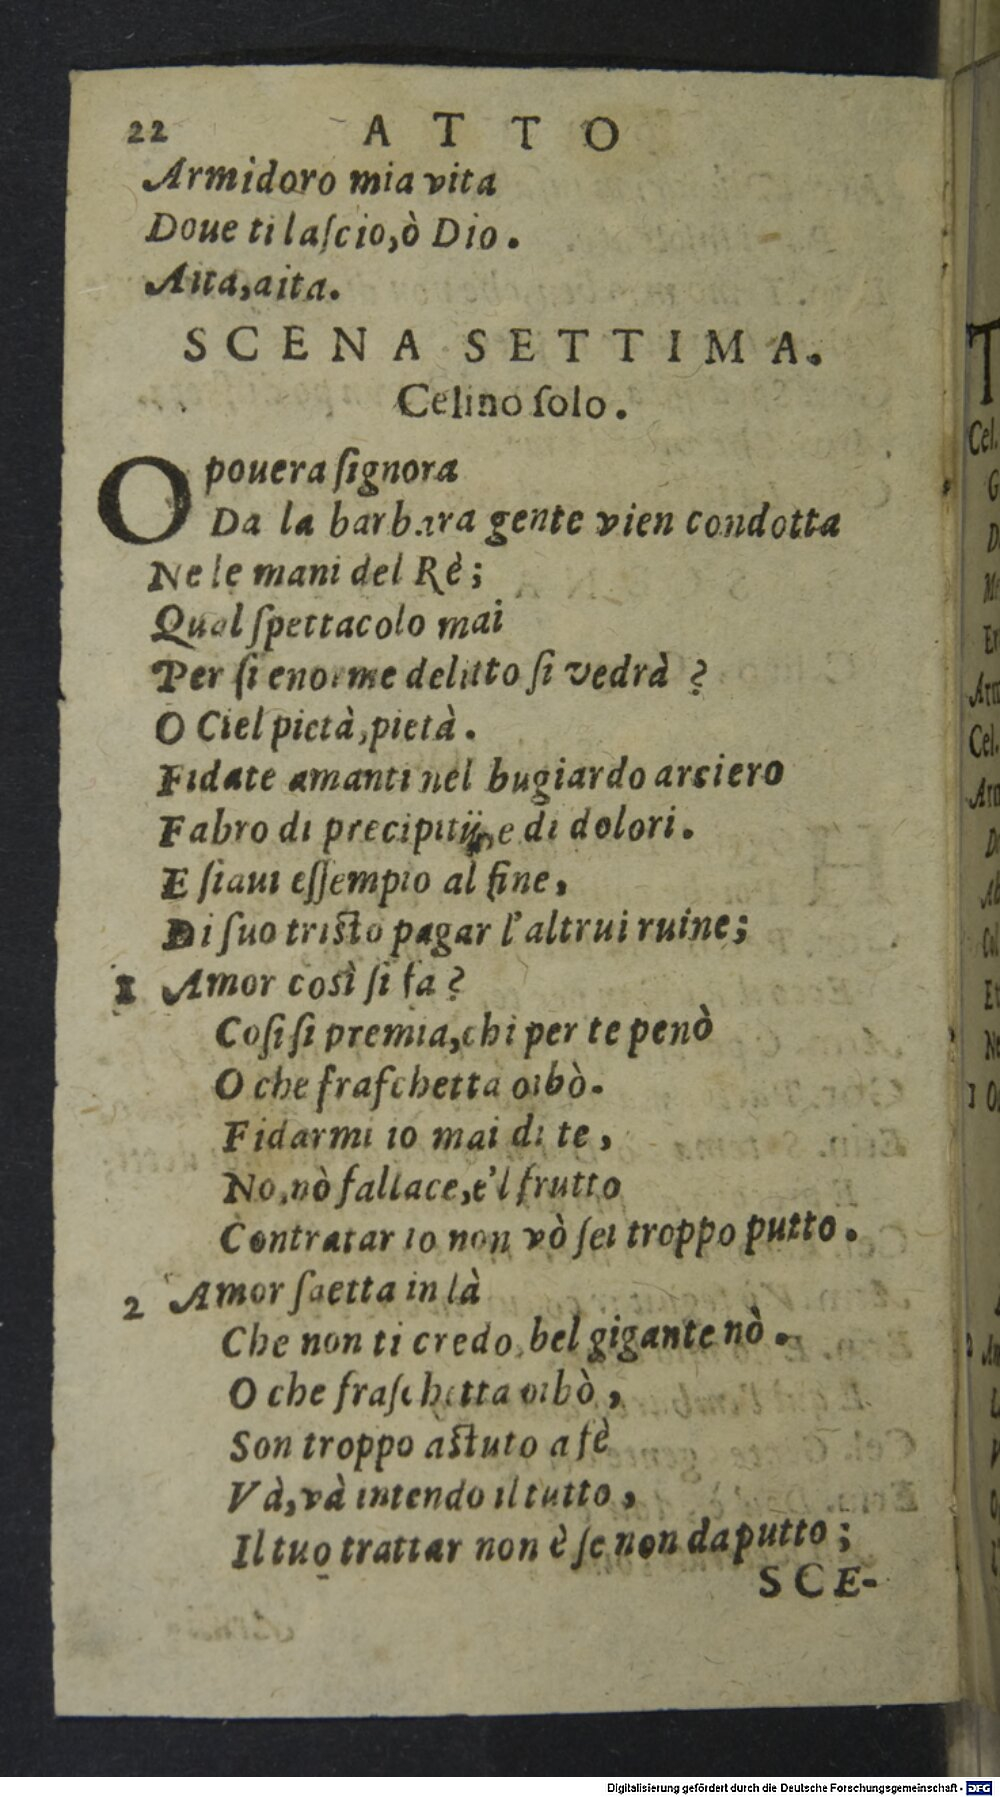 22 ATTO
Armidoro mia vita
Doue ti laſcio, ò Dio.
Aita, aita.
SCENA SETTIMA.
Celino ſolo.
O pouera ſignora
Da la barbara gente vien condotta
Ne le mani del Rè;
Qual ſpettacolo mai
Per ſi enorme delitto ſi vedrà?
O Ciel pietà, pietà.
Fidate amanti nel bugiardo arciero
Fabro di precipitij, e di dolori.
E ſiaui eſſempio al fine,
Di ſuo triſto pagar l'altrui ruine;
1 Amor così ſi fa?
Coſi ſi premia, chi per te penò
O che fraſchetta oibò.
Fidarmi io mai di te,
No, nò fallace, e'l frutto
Contratar io non vò ſei troppo putto.
2 Amor ſaetta in là
Che non ti credo, bel gigante nò.
O che fraſchetta oibò,
Son troppo aſtuto a fè
Và, và intendo il tutto,
Il tuo trattar non è ſe non da putto;
SCE-
T
Cel.
G
D
Er
Arm
Cel.
Arm
D
Et
Ne
1 O
2
Digitalisierung gefördert durch die Deutsche Forschungsgemeinschaft - DFG